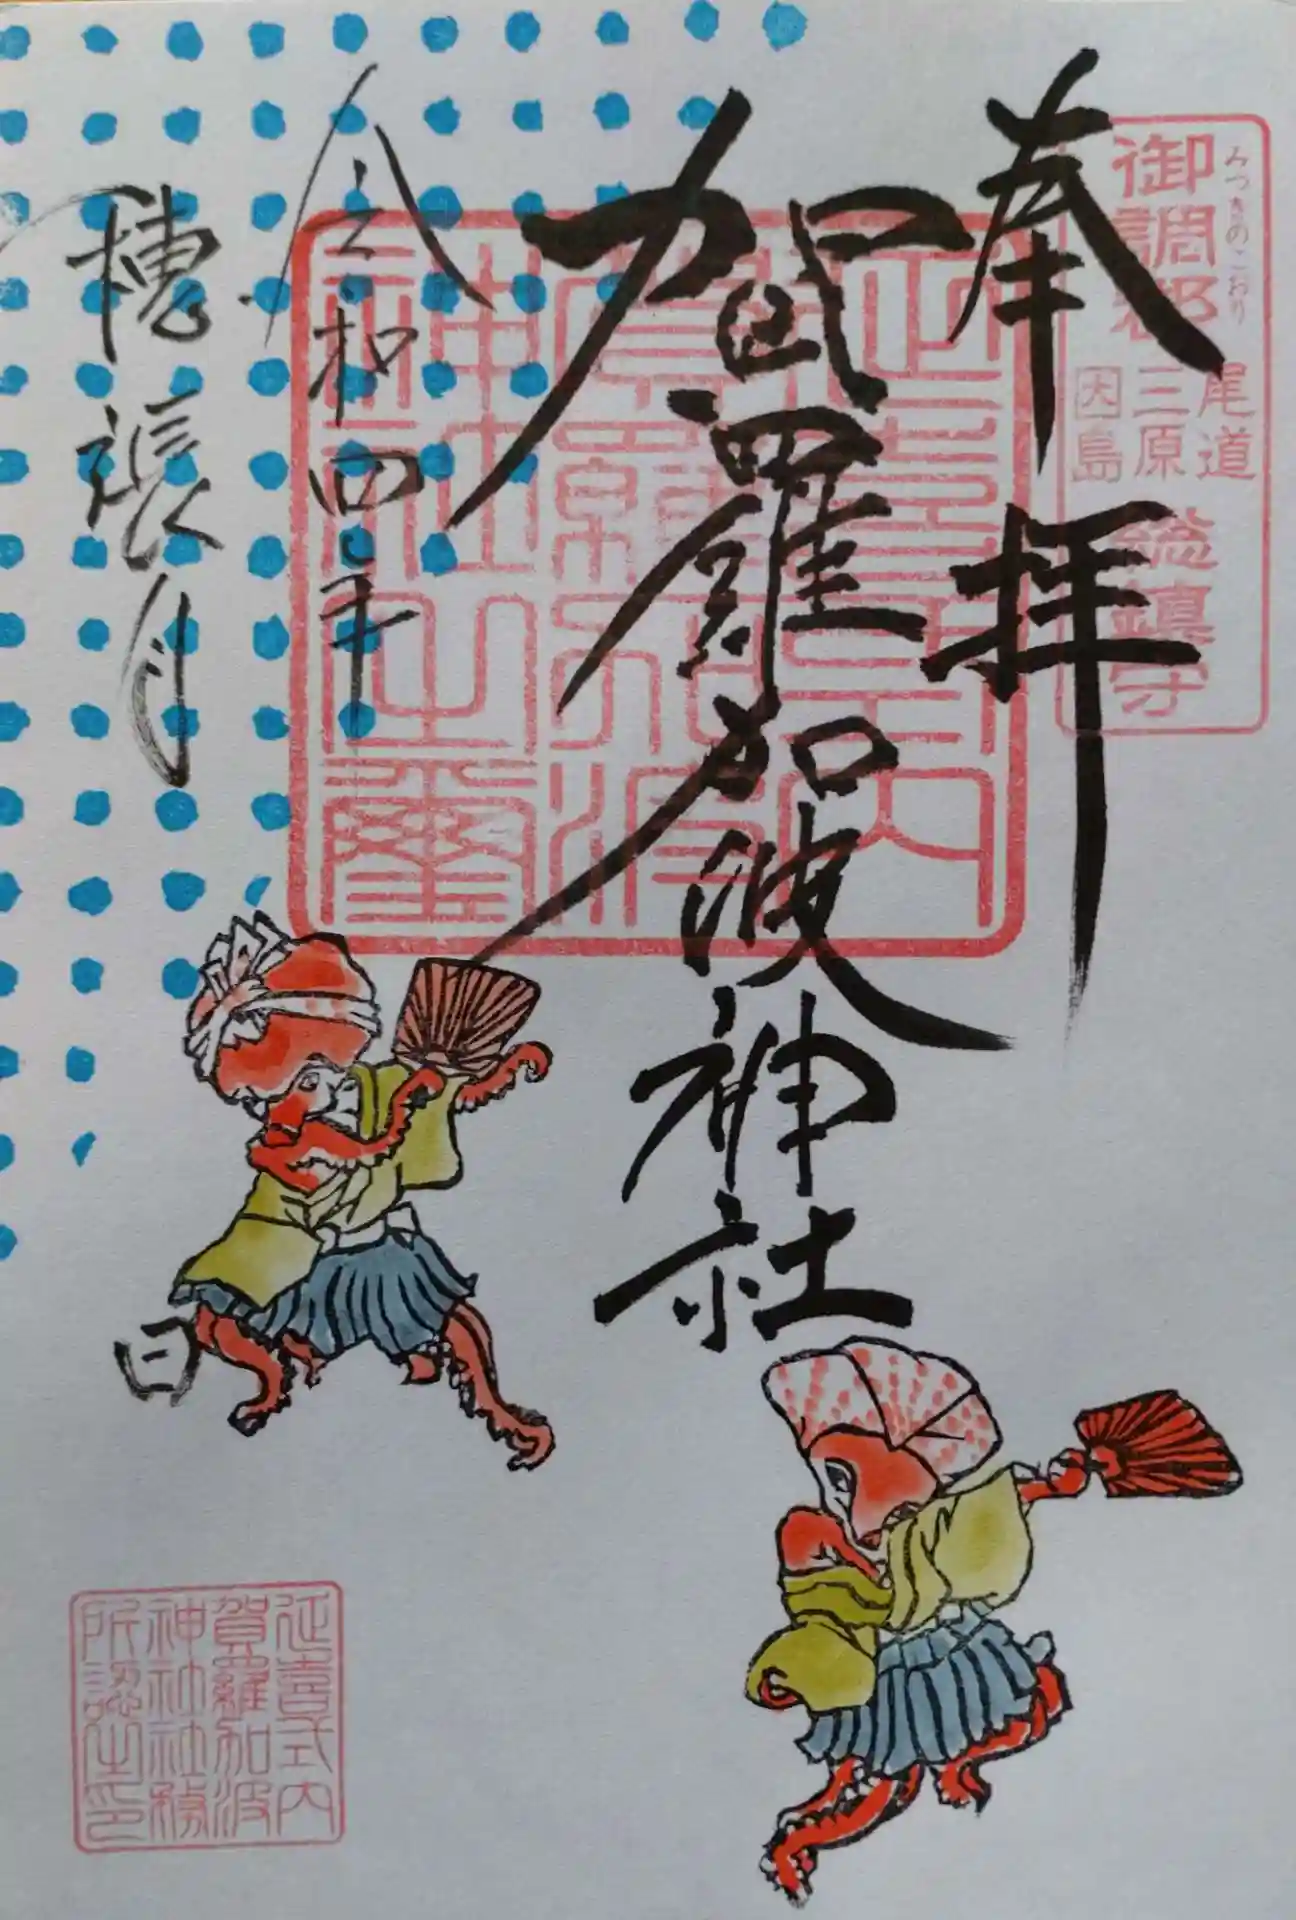 奉拝
御調郡
みつきのこおり
尾道
三原
因島
総鎮守
賀羅加波神社
延喜式内
賀羅加波
神社之璽
令和四年
穂張月
日
延喜式内
賀羅加波
神社社務
所認之印